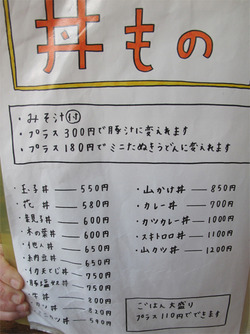 丼もの
・みそ汁付
・プラス300円で豚汁に変えれます
・プラス180円でミニたぬきうどんに変えれます
・玉子丼 550円
・花 丼 580円
・親子丼 600円
・木の葉丼 600円
・他人丼 650円
・肉丼 650円
・イカ天とじ丼 750円
・豚塩丼 750円
丼 800円
カツ丼 820円
・山かけ丼 850円
・カレー丼 700円
・カツカレー丼 1000円
・スキトロロ丼 1100円
・山カツ丼 1200円
ごはん大盛り
プラス110円でできます